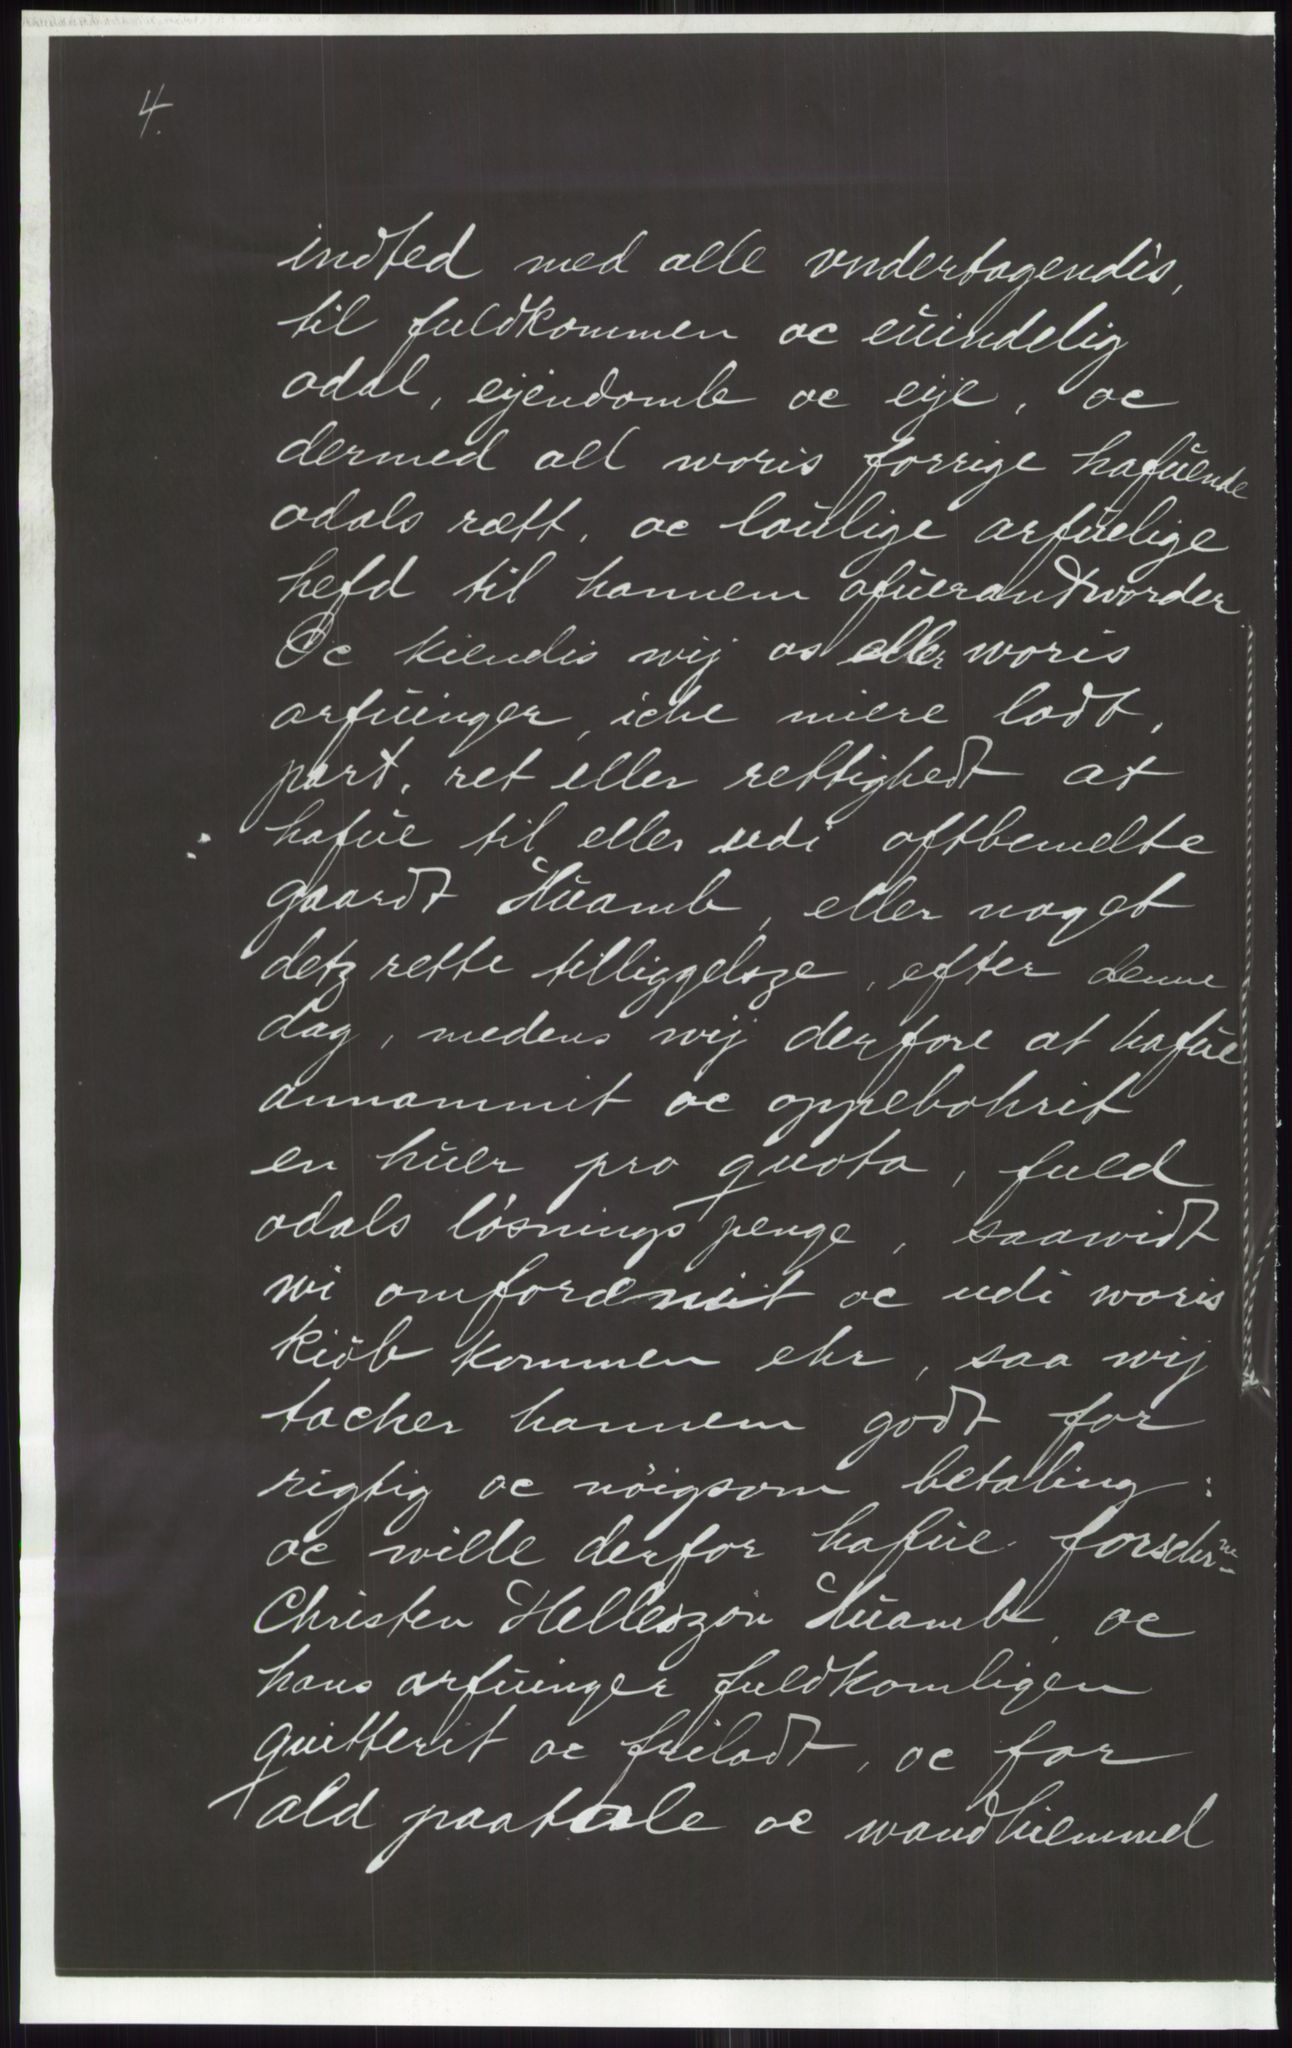 4.
indted med alle vndertagendis,
til fuldkommen oc eŭindelig
odal, eyendomb oc eye, oc
dermed all woris forrige hafŭende
odals rætt, oc loŭlige arfŭelige
hefd til hannem ofŭerandtworder
Oc kiendis wij os eller woris
arfŭinger, iche miere lodt,
part, ret eller rettighedt at
hafŭe til eller udi oftbemelte
gaardt Hŭamb, eller noget
detz rette tilliggelsze, efter denne
dag, medens wij derfore at hafŭe
annammit oc oppebohrit
en hŭer pro quota, fuld
odals løsnings penge, saawidt
wi omforenit oc udi woris
kiøb kommen ehr, saa wij
tacker hannem godt for
rigtig oc nøigsom betaling:
oc wille derfor hafŭe forschrne
Christen Helleszøn Hŭamb, oc
hans arfŭinger fuldkomligen
quitterit oc friladt, oc for
ald paatale oc wandhiemmel